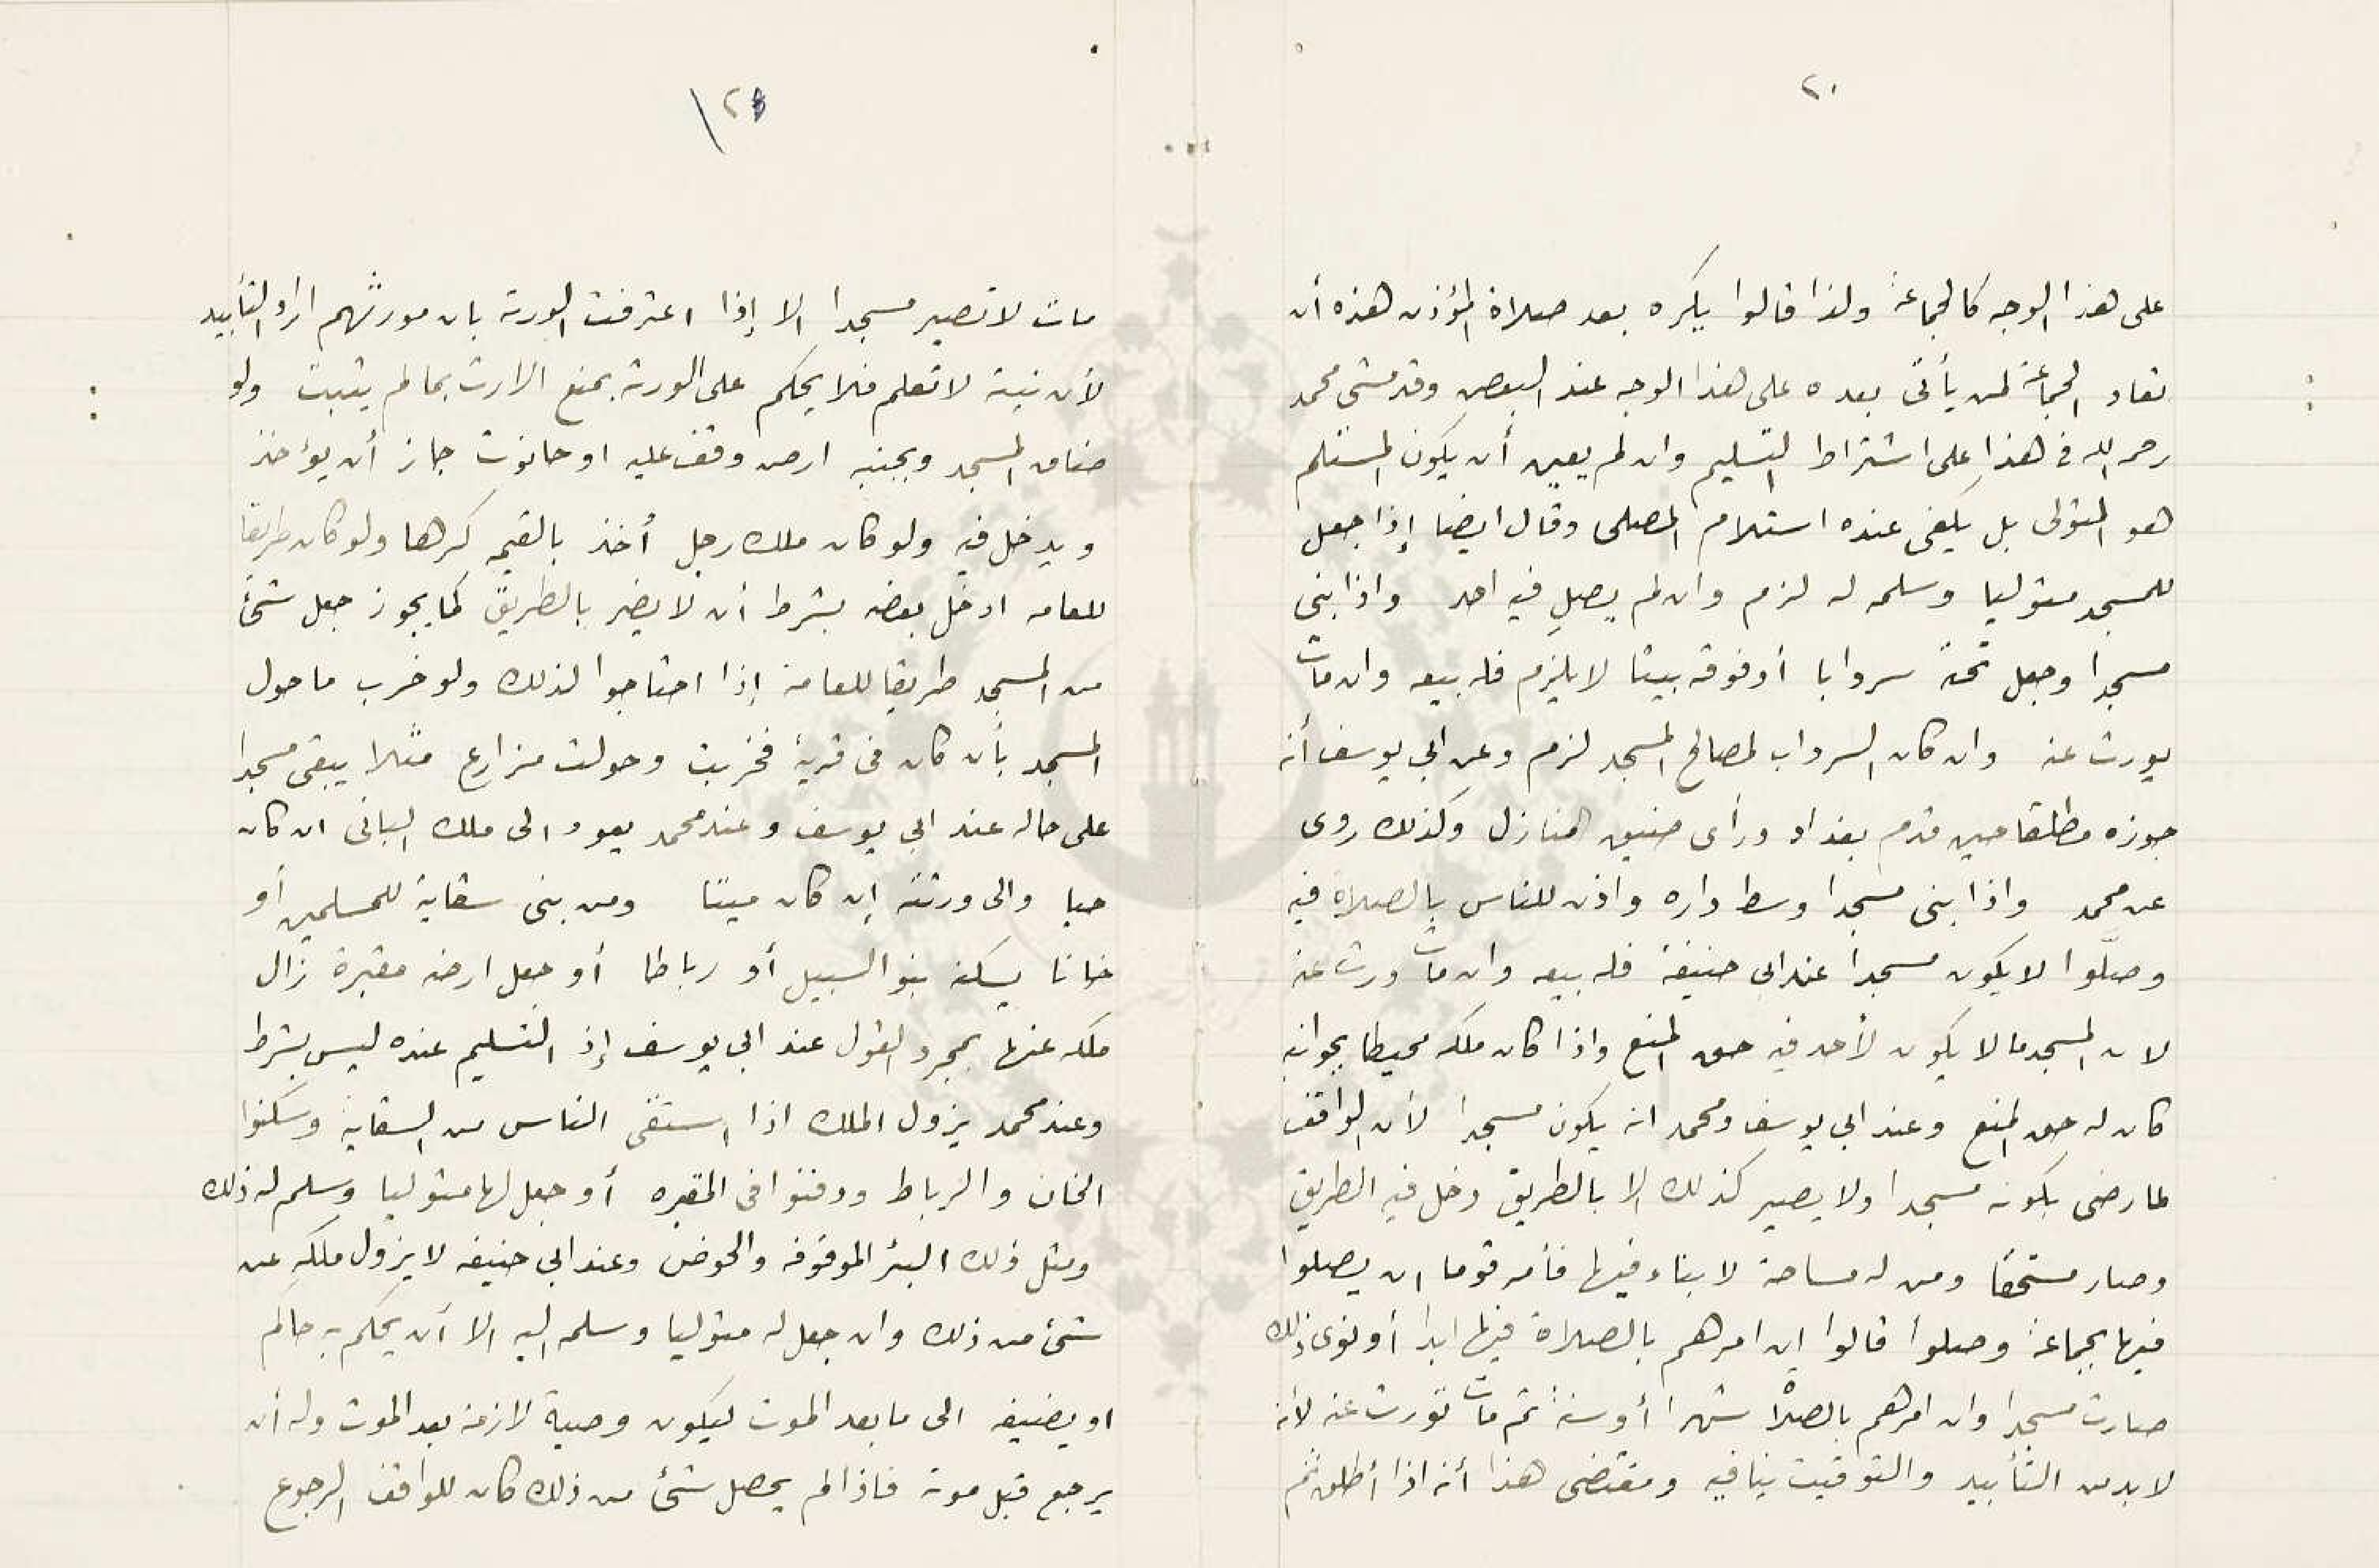 ٢٠
على هذا الوجه كالجماعة ولذا قالوا يكره بعد صلاة المؤذن هذه أن
تعاد الجماعة لمن يأتى بعده على هذا الوجه عند البعض وقد مشى محمد
رحمه الله فى هذا على اشتراط التسليم وان لم يعين أن يكون المستلم
هو المتولى بل يكفى عنده استلام المصلى وقال ايضا إذا جعل
للمسجد متوليا وسلمه له لزم وان لم يصل فيه احد واذا بنى
مسجدا وجعل تحته سردابا أو فوقه بيتا لا يلزم فله بيعه وان مات
يورث عنه وان كان السرداب لمصالح المسجد لزم وعن ابي يوسف أنه
جوزه مطلقا حين قدم بغداد ورأى ضيق المنازل وكذلك روى
عن محمد واذا بنى مسجدا وسط داره واذن للناس بالصلاة فيه
وصلّوا لا يكون مسجدا عند ابى حنيفة فله بيعه وان مات ورث عنه
لان المسجد ما لا يكون لأحد فيه حق المنع واذا كان ملكه محيطا بجوانبه
كان له حق المنع وعند ابي يوسف ومحمد انه يكون مسجدا لأن الواقف
لما رضى بكونه مسجدا ولا يصير كذلك الا بالطريق دخل فيه الطريق
وصار مستحقا ومن له مساحة لا بناء فيها فأمر قوما ان يصلوا
فيها بجماعة وصلوا قالوا إن امرهم بالصلاة فيها ابدا أو نوى ذلك
صارت مسجدا وان امرهم بالصلاة شهرا أو سنة ثم مات تورث عنه لأنه
لا بد من التأبيد والتوقيت ينافيه ومقتضى هذا أنه اذا أطلق ثم
مات لا تصير مسجدا الا إذا اعترفت الورثة بان مورثهم اراد التأبيد
لأن نيته لا تعلم فلا يحكم على الورثة بمنع الارث بما لم يثبت ولو
ضاق المسجد وبجنبه ارض وقف عليه او حانوت جاز أن يؤخذ
ويدخل فيه ولو كان ملك رجل أخذ بالقيمه كرها ولو كان طريقا
للعامه ادخل بعضه بشرط أن لا يضر بالطريق كما يجوز جعل شئ
من المسجد طريقا للعامة إذا احتاجوا لذلك ولو خرب ما حول
المسجد بأن كان فى قرية فخربت وحولت مزارع مثلا يبقى مسجدا
على حاله عند ابي يوسف وعند محمد يعود الى ملك البانى ان كان
حيا والى ورثته إن كان ميتا ومن بنى سقاية للمسلمين أو
خانا يسكنه بنو السبيل أو رباطا أو جعل ارضه مقبرة زال
ملكه عنها بمجرد القول عند ابي يوسف إذ التسليم عنده ليس بشرط
وعند محمد يزول الملك اذا استقى الناس من السقاية وسكنوا
الخان والرباط ودفنوا فى المقبره أو جعل لها متوليا وسلم له ذلك
ومثل ذلك البئر الموقوفه والحوض وعند ابي حنيفه لا يزول ملكه عن
شئ من ذلك وان جعل له متوليا وسلمه اليه الا أن يحكم به حاكم
او يضيفه الى ما بعد الموت ليكون وصية لازمة بعد الموت وله أن
يرجع قبل موته فاذا لم يحصل شئ من ذلك كان للواقف الرجوع